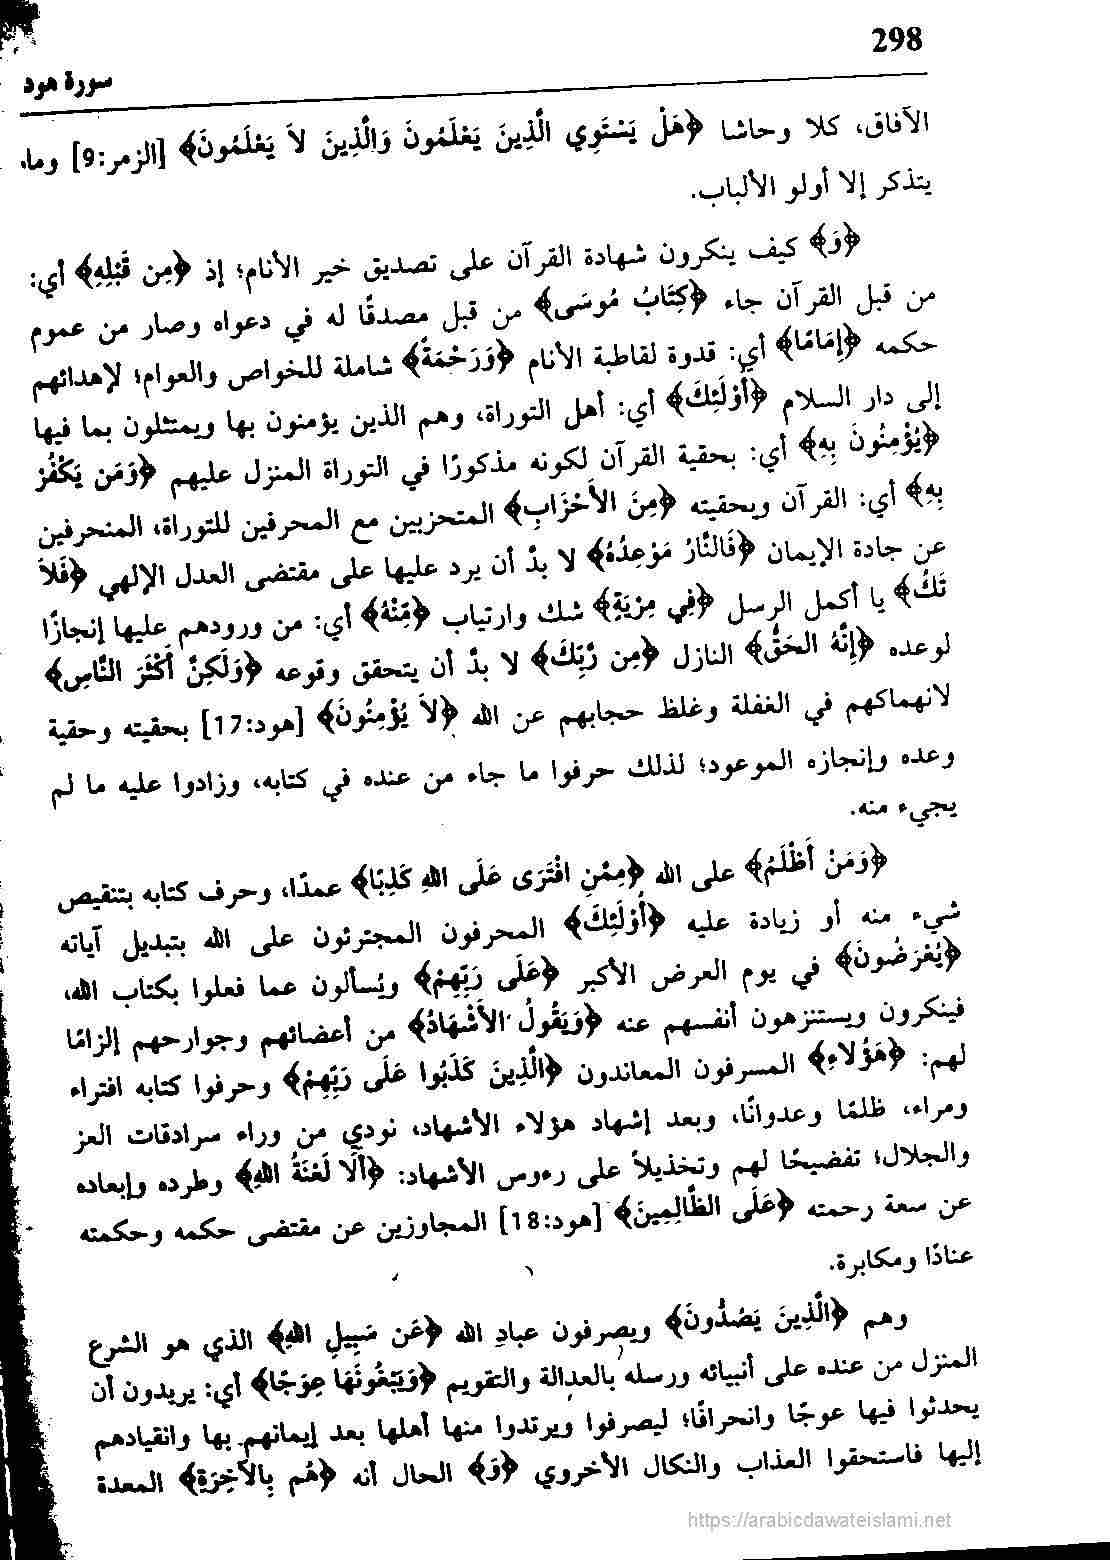 298
سورة هود
الآفاق، كلا وحاشا ﴿هَلْ يَسْتَوِي الَّذِينَ يَعْلَمُونَ وَالَّذِينَ لاَ يَعْلَمُونَ﴾ [الزمر:9] وما
يتذكر إلا أولو الألباب.
﴿وَ﴾ كيف ينكرون شهادة القرآن على تصديق خير الأنام؛ إذ ﴿مِن قَبْلِهِ﴾ أي:
من قبل القرآن جاء ﴿كِتَابُ مُوسَى﴾ من قبل مصدقًا له في دعواه وصار من عموم
حكمه ﴿إِمَامًا﴾ أي: قدوة لقاطبة الأنام ﴿وَرَحْمَةً﴾ شاملة للخواص والعوام؛ لإهدائهم
إلى دار السلام ﴿أُوْلَئِكَ﴾ أي: أهل التوراة، وهم الذين يؤمنون بها ويمتثلون بما فيها
﴿يُؤْمِنُونَ بِهِ﴾ أي: بحقية القرآن لكونه مذكورًا في التوراة المنزل عليهم ﴿وَمَن يَكْفُرْ
بِهِ﴾ أي: القرآن وبحقيته ﴿مِنَ الأَحْزَابِ﴾ المتحزبين مع المحرفين للتوراة، المنحرفين
عن جادة الإيمان ﴿فَالنَّارُ مَوْعِدُهُ﴾ لا بدَّ أن يرد عليها على مقتضى العدل الإلهي ﴿فَلاَ
تَكُ﴾ يا أكمل الرسل ﴿فِي مِرْيَةٍ﴾ شك وارتياب ﴿مِّنْهُ﴾ أي: من ورودهم عليها إنجازًا
لوعده ﴿إِنَّهُ الحَقُّ﴾ النازل ﴿مِن رَّبِّكَ﴾ لا بدَّ أن يتحقق وقوعه ﴿وَلَكِنَّ أَكْثَرَ النَّاسِ﴾
لانهماكهم في الغفلة وغلظ حجابهم عن الله ﴿لاَ يُؤْمِنُونَ﴾ [هود:17] بحقيته وحقية
وعده وإنجازه الموعود؛ لذلك حرفوا ما جاء من عنده في كتابه، وزادوا عليه ما لم
يجيء منه.
﴿وَمَنْ أَظْلَمُ﴾ على الله ﴿مِمَّنِ افْتَرَى عَلَى اللهِ كَذِبًا﴾ عمدًا، وحرف كتابه بتنقيص
شيء منه أو زيادة عليه ﴿أُوْلَئِكَ﴾ المحرفون المجترئون على الله بتبديل آياته
﴿يُعْرَضُونَ﴾ في يوم العرض الأكبر ﴿عَلَى رَبِّهِمْ﴾ ويُسألون عما فعلوا بكتاب الله،
فينكرون ويستنزهون أنفسهم عنه ﴿وَيَقُولُ الأَشْهَادُ﴾ من أعضائهم وجوارحهم إلزامًا
لهم: ﴿هَؤُلاءِ﴾ المسرفون المعاندون ﴿الَّذِينَ كَذَبُوا عَلَى رَبِّهِمْ﴾ وحرفوا كتابه افتراء
ومراء، ظلمًا وعدوانًا، وبعد إشهاد هؤلاء الأشهاد، نودي من وراء سرادقات العز
والجلال؛ تفضيحًا لهم وتخذيلاً على رءوس الأشهاد: ﴿أَلَا لَعْنَةُ اللهِ﴾ وطرده وإبعاده
عن سعة رحمته ﴿عَلَى الظَّالِمِينَ﴾ [هود:18] المجاوزين عن مقتضى حكمه وحكمته
عنادًا ومكابرة.
وهم ﴿الَّذِينَ يَصُدُّونَ﴾ ويصرفون عبادِ الله ﴿عَن سَبِيلِ اللهِ﴾ الذي هو الشرع
المنزل من عنده على أنبيائه ورسله بالعدالة والتقويم ﴿وَيَبْغُونَهَا عِوَجًا﴾ أي: يريدون أن
يحدثوا فيها عوجًا وانحرافًا؛ ليصرفوا ويرتدوا منها أهلها بعد إيمانهم بها وانقيادهم
إليها فاستحقوا العذاب والنكال الأخروي ﴿وَ﴾ الحال أنه ﴿هُم بِالآخِرَةِ﴾ المعدة
https://arabicdawateislami.net